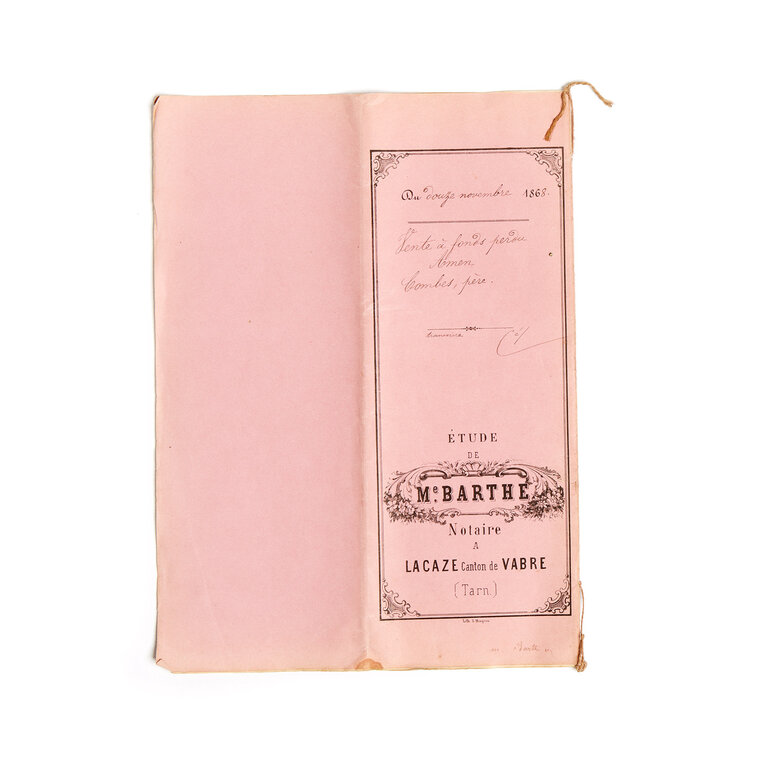 Du douze novembre 1868.
Vente à fonds perdu
Amen
Combes, père.
ÉTUDE
DE
Me. BARTHE
Notaire
A
LACAZE Canton de VABRE
(Tarn.)